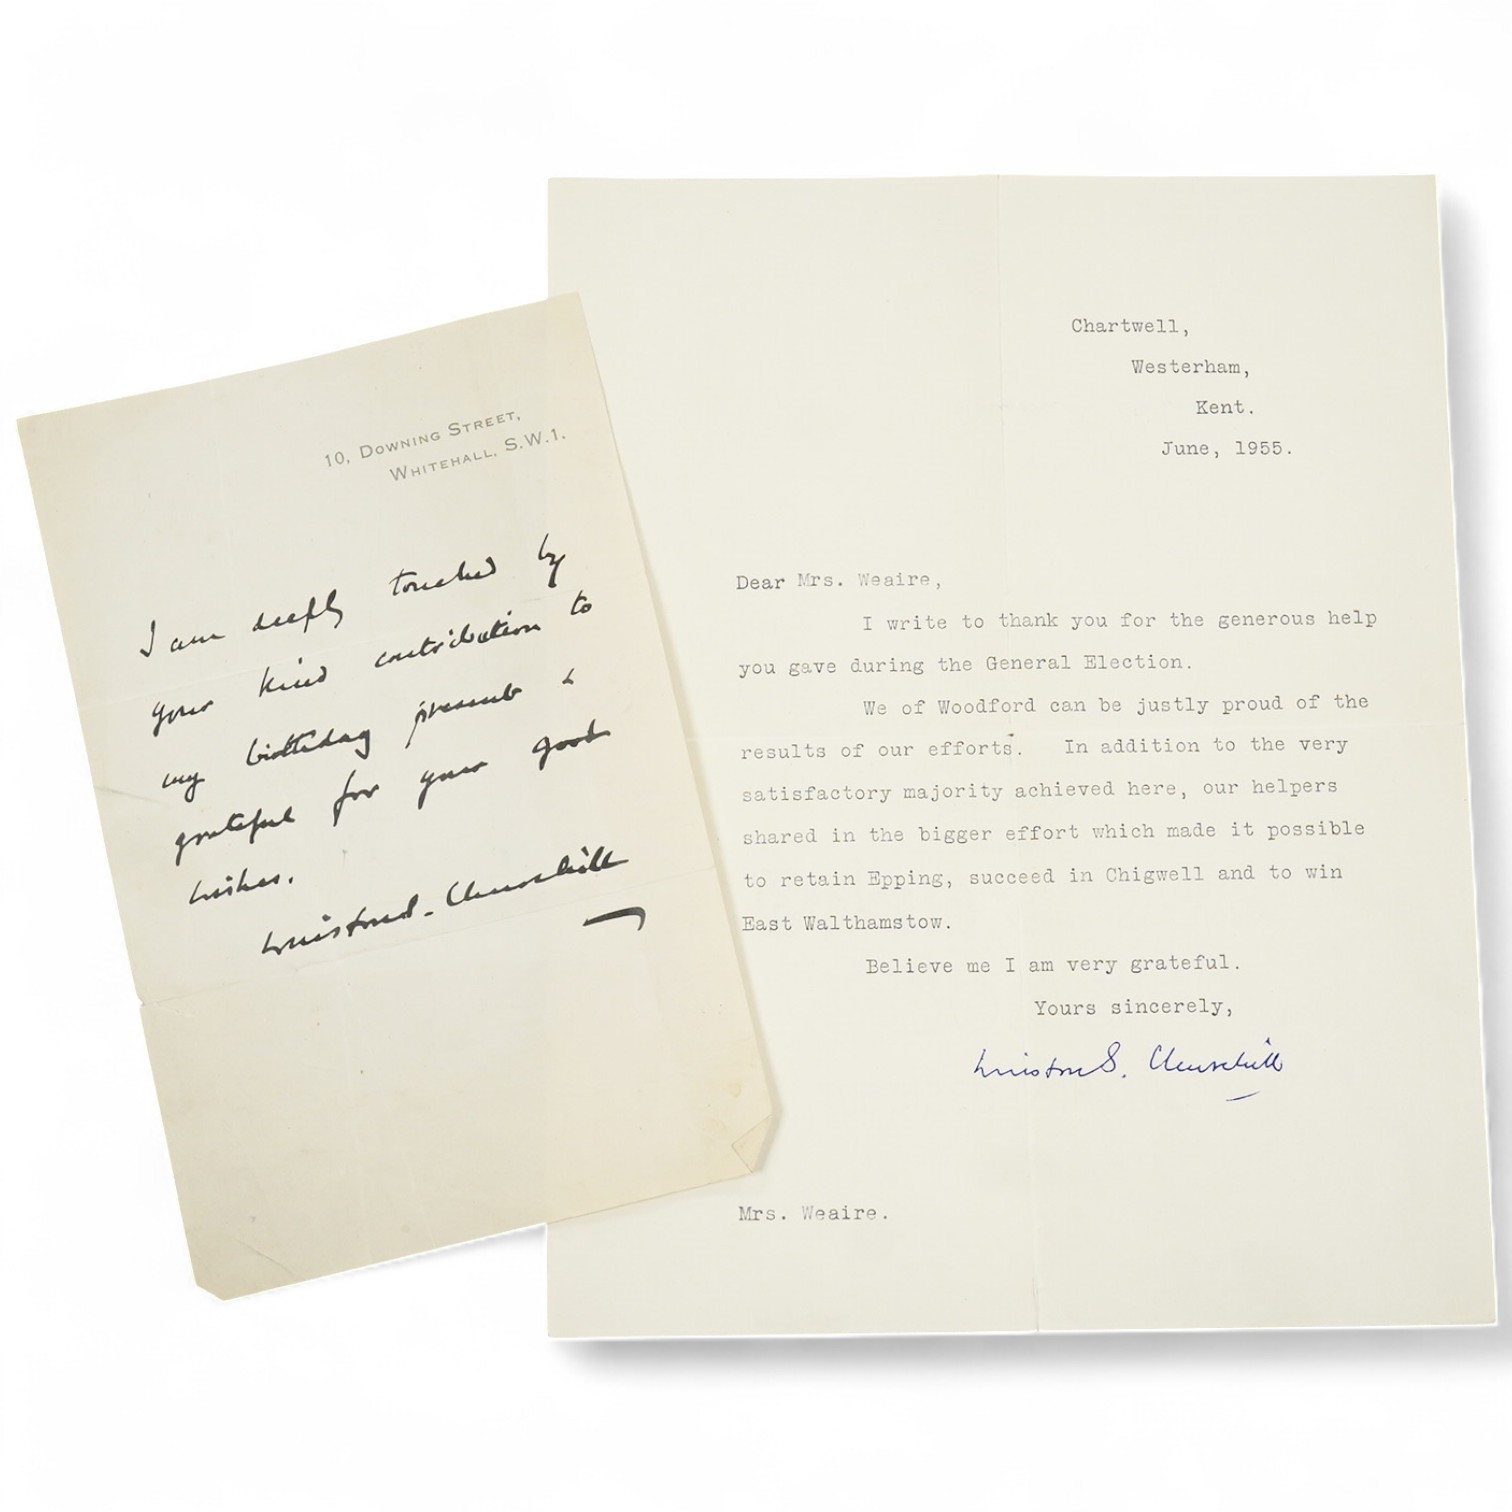 10, DOWNING STREET,
WHITEHALL, S.W.1.
I am deeply touched by
your kind contribution to
my birthday present &
grateful for your good
wishes.
Winston S. Churchill
Chartwell,
Westerham,
Kent.
June, 1955.
Dear Mrs. Weaire,
I write to thank you for the generous help
you gave during the General Election.
We of Woodford can be justly proud of the
results of our efforts. In addition to the very
satisfactory majority achieved here, our helpers
shared in the bigger effort which made it possible
to retain Epping, succeed in Chigwell and to win
East Walthamstow.
Believe me I am very grateful.
Yours sincerely,
Winston S. Churchill
Mrs. Weaire.